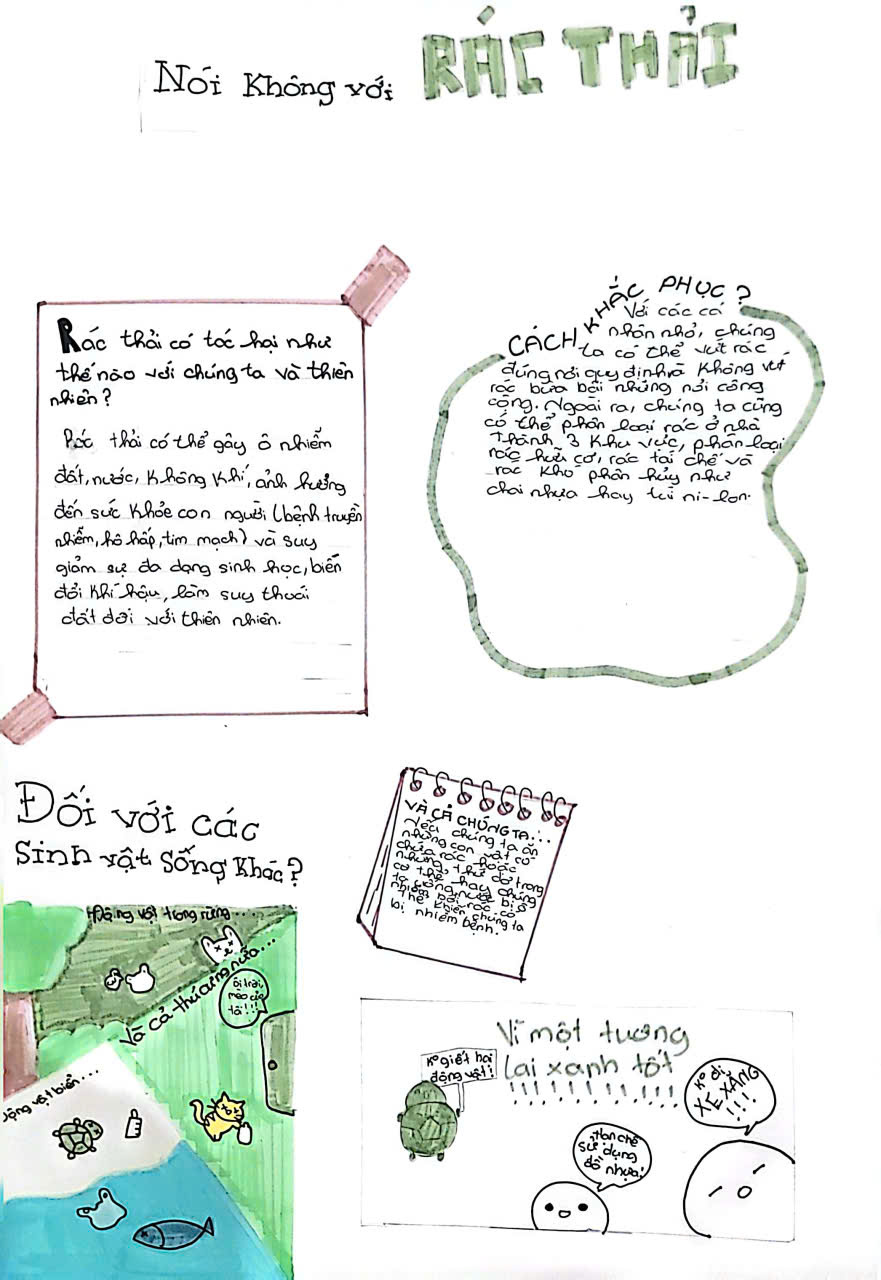 Nói Không với RÁC THẢI
Rác thải có tác hại như
thế nào với chúng ta và thiên
nhiên?
Rác thải có thể gây ô nhiễm
đất, nước, không khí, ảnh hưởng
đến sức khỏe con người (bệnh truyền
nhiễm, hô hấp, tim mạch) và suy
giảm sự đa dạng sinh học, biến
đổi khí hậu, làm suy thoái
đất đai với thiên nhiên.
CÁCH KHẮC PHỤC?
Với các cá
nhân nhỏ, chúng
ta có thể vứt rác
đúng nơi quy định và không vứt
rác bừa bãi những nơi công
cộng. Ngoài ra, chúng ta cũng
có thể phân loại rác ở nhà
thành 3 khu vực, phân loại
rác hữu cơ, rác tái chế và
rác khó phân hủy như
chai nhựa hay túi ni-lon.
Đối với các
sinh vật sống khác?
Động vật trong rừng...
Và cả thú cưng nữa...
Ôi trời,
mèo của
tôi!!!
Động vật biển...
VÀ CẢ CHÚNG TA...
Nếu chúng ta ăn
những con vật có
chứa rác hoặc
những thứ dơ trong
cơ thể hay chúng
ta uống nước bị ô
nhiễm bởi rác có
thể khiến chúng ta
bị nhiễm bệnh.
Vì một tương
lai xanh tốt
!!!!!!!!!!
K° giết hại
động vật!
Hạn chế
sử dụng
đồ nhựa!
K° đi
XE XĂNG
!!!